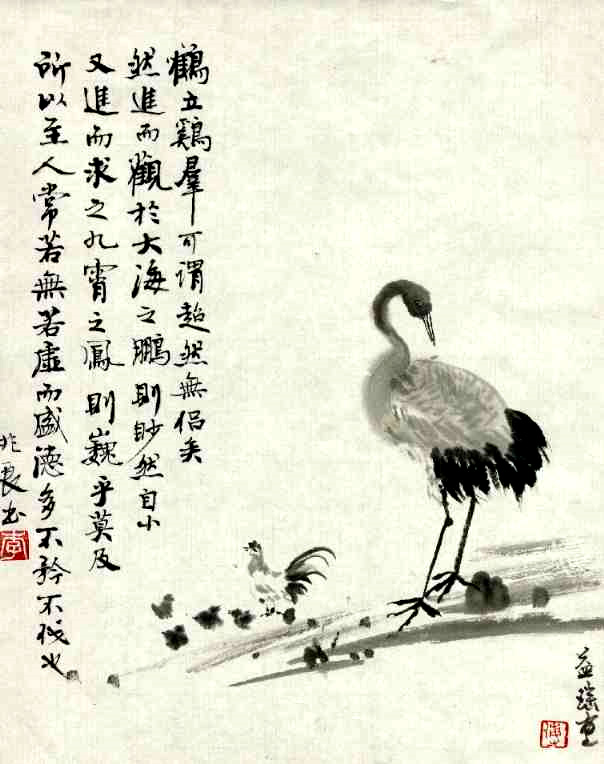 鶴立鷄羣可謂超然無侶矣
然進而觀於大海之鵬則眇然自小
又進而求之九霄之鳳則巍乎莫及
所以至人常若無若虛而盛德多不矜不伐也
兆良書
李
益瑤畫